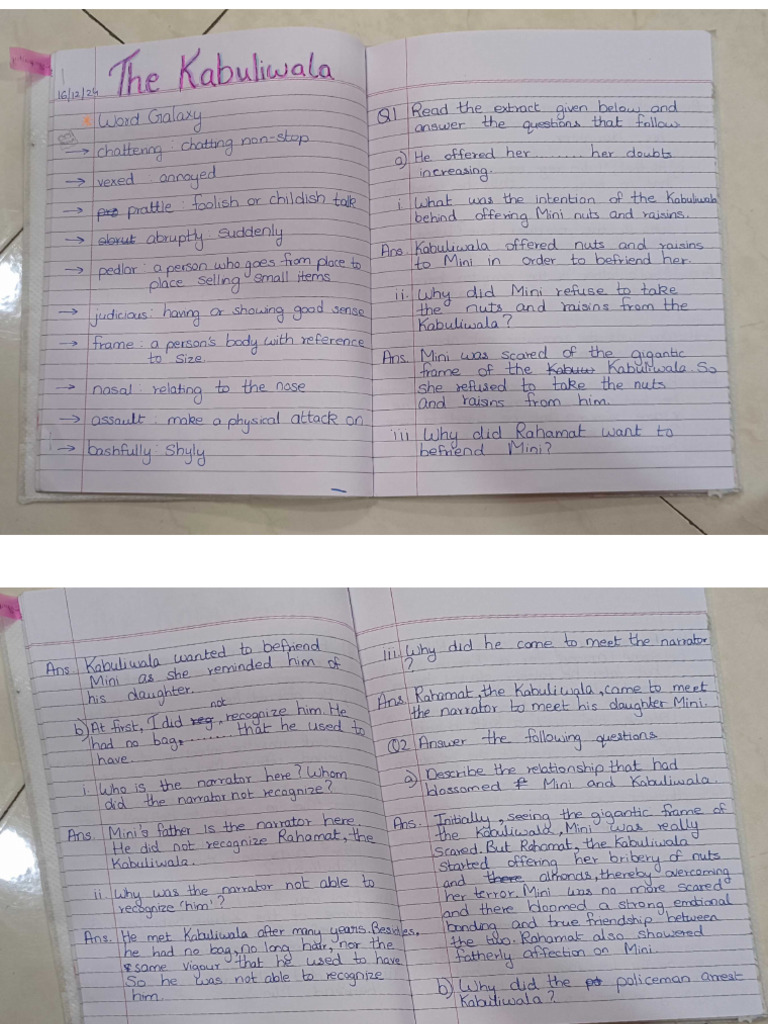 16/12/24
The Kabuliwala
Word Galaxy
→ chattering : chatting non-stop
→ vexed : annoyed
→ pro prattle : foolish or childish talk
→ abruptly : Suddenly
→ pedlar : a person who goes from place to
place selling small items
→ judicious : having or showing good sense
→ frame : a person's body with reference
to size.
→ nasal : relating to the nose
→ assault : make a physical attack on
→ bashfully : Shyly
Q1 Read the extract given below and
answer the questions that follow
a) He offered her ........ her doubts
increasing.
i. What was the intention of the Kabuliwala
behind offering Mini nuts and raisins.
Ans. Kabuliwala offered nuts and raisins
to Mini in order to befriend her.
ii. Why did Mini refuse to take
the nuts and raisins from the
Kabuliwala?
Ans. Mini was scared of the gigantic
frame of the Kabuliwala. So
she refused to take the nuts
and raisins from him.
iii Why did Rahamat want to
befriend Mini?
Ans. Kabuliwala wanted to befriend
Mini as she reminded him of
his daughter.
b) At first, I did not recognize him. He
had no bag, ........ that he used to
have.
i. Who is the narrator here? Whom
did the narrator not recognize?
Ans. Mini's father is the narrator here.
He did not recognize Rahamat, the
Kabuliwala.
ii Why was the narrator not able to
recognize 'him'?
Ans. He met Kabuliwala after many years. Besides,
he had no bag, no long hair, nor the
same vigour that he used to have
So he was not able to recognize
him.
iii. Why did he come to meet the narrator
?
Ans. Rahamat, the Kabuliwala, came to meet
the narrator to meet his daughter Mini.
Q2 Answer the following questions
a) Describe the relationship that had
blossomed Mini and Kabuliwala.
Ans. Initially, seeing the gigantic frame of
the Kabuliwala, Mini was really
scared. But Rahamat, the Kabuliwala
started offering her bribery of nuts
and there almonds, thereby overcoming
her terror. Mini was no more scared
and there bloomed a strong emotional
bonding and true friendship between
the two. Rahamat also showered
fatherly affection on Mini.
b) Why did the policeman arrest
Kabuliwala?